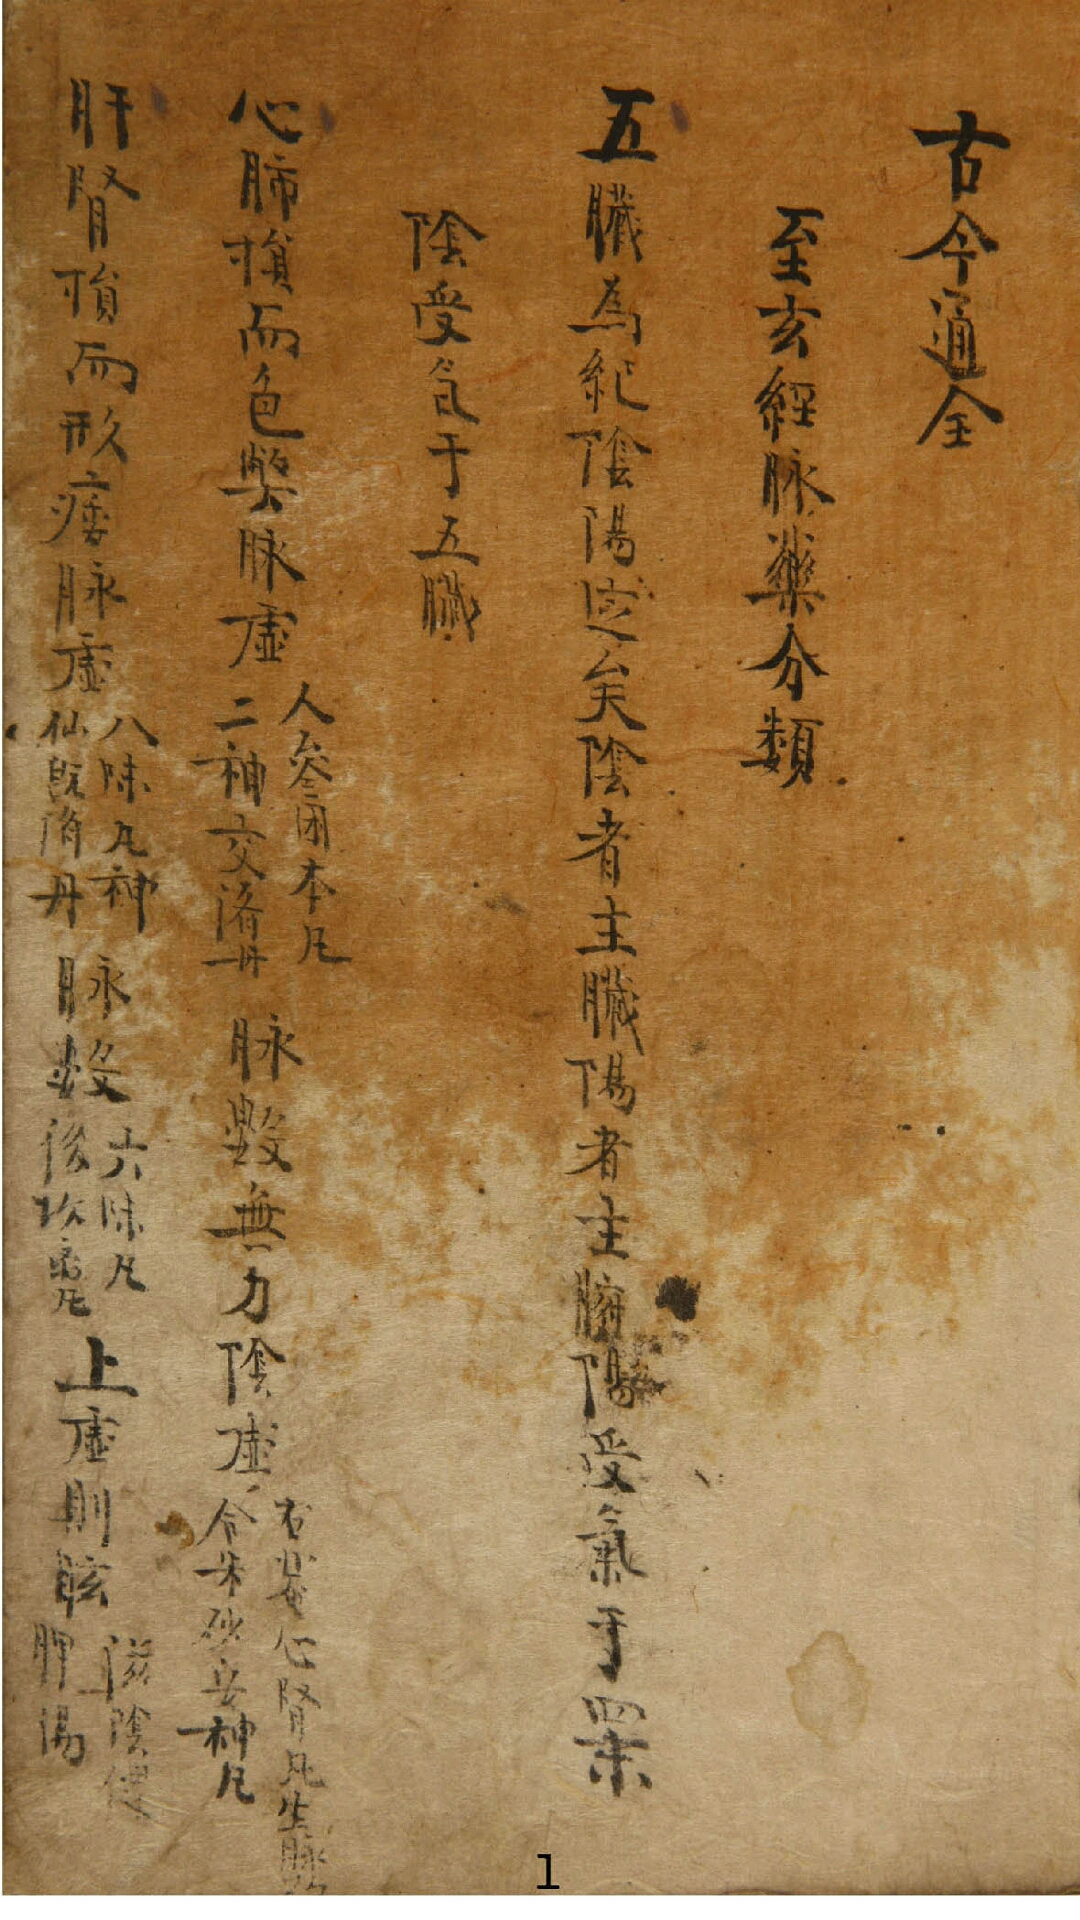 古今通全
至玄經脉藥分類
五臟為紀陰陽定矣陰者主臟陽者主腑陽受氣于四末
陰受气于五臟
心肺損而色弊脉虛
人參固本凡
二神交濟丹
脉數無力陰虛
心腎凡生脉
令朱砂安神凡
肝腎損而形痿脉虛
八味凡神
仙既濟丹
脉数
六味凡
上虛則眩
滋陰健
脾湯
1